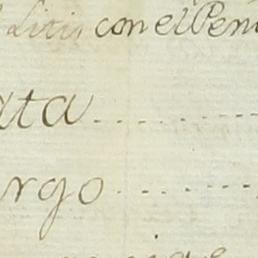 Litis, con el Pen
ata
rgo